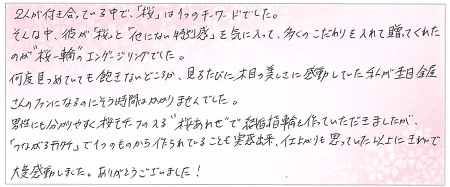 2人が付き合っている中で、「桜」は1つのキーワードでした。
そんな中、彼が「桜」と「他にない特別感」を気に入って、多くのこだわりを入れて贈ってくれた
のが"桜一輪"のエンゲージリングでした。
何度見つめていても飽きないどころか、見るたびに木目の美しさに感動していた私が杢目金屋
さんのファンになるのにそう時間はかかりませんでした。
男性にも分かりやすく桜モチーフの入る"桜あわせ"で結婚指輪を作っていただきましたが、
「つながるカタチ」で1つのものから作られていることも実感出来、仕上がりも思っていた以上にきれいで
大変感動しました。ありがとうございました!